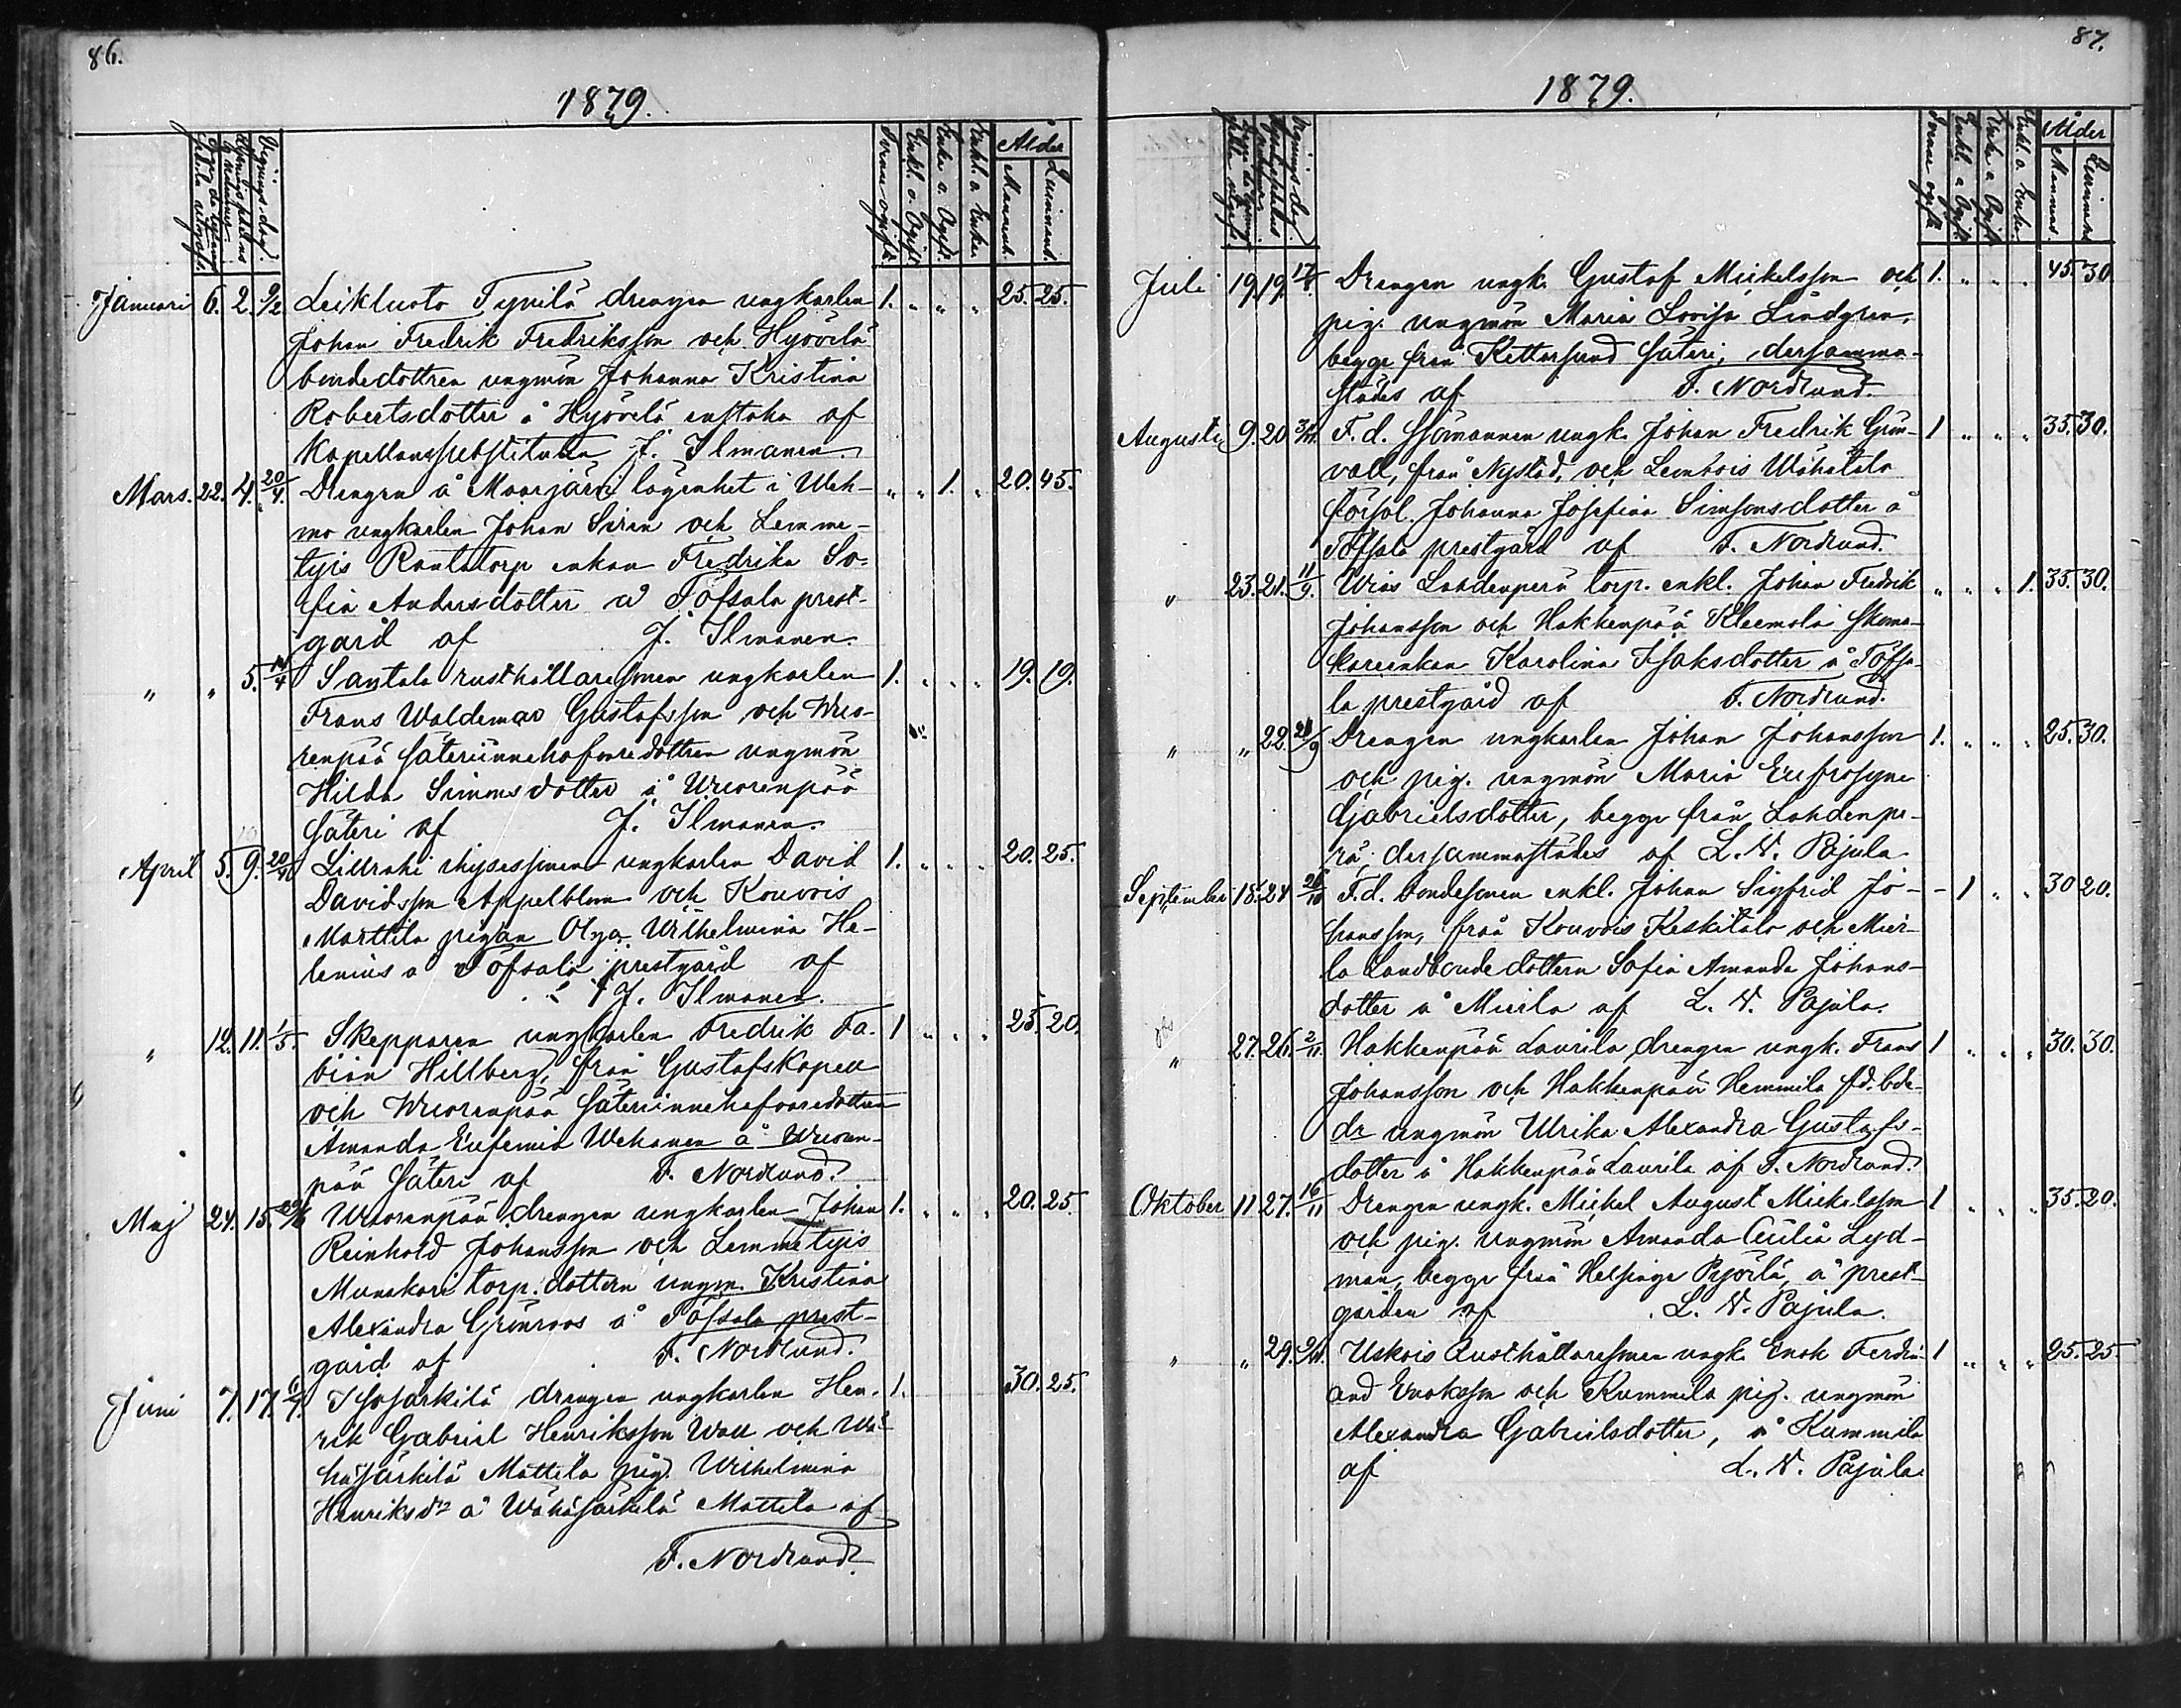 86.
1879.
Ålder
Mannens. Qvinnans.
Januari 6. 2. 9/2. Leikluoto Tynilä drengen ungkarlen 1. " " " 25. 25.
Johan Fredrik Fredriksson och Hyövelä
bondedottren ungmön Johanna Kristina
Robertsdotter å Hyövelä enstaka af
Kapellanssubstituten J. Ilmanen.
Mars. 22. 4. 20/4. Drengen å Maarjärvi lägenhet i Weh- " " 1. " 20. 45.
mo ungkarlen Johan Siren och Lemme-
tyis Rantatorp enkan Fredrika So-
fia Andersdotter å Töfsala prest-
gård af J. Ilmanen.
" " 5. 14/4 Santala rusthållaresonen ungkarlen 1. " " " 19. 19.
Frans Waldemar Gustafsson och Wuo-
renpää säteriinnehafvaredottren ungmön
Hilda Simonsdotter å Wuorenpää
säteri af J. Ilmanen.
April 5. 9. 20/4 ungkarlen David 1. " " " 20. 25.
Davidsson Appelblom och Kouvois
Marttila pigan Olga Wilhelmina He-
lenius å Töfsala prestgård af
J. Ilmanen.
" 12. 11. 1/5. Skepparen ungkarlen Fredrik Fa- 1 " " " 25. 20.
bian Hillberg, från Gustafskapell
och Wuorenpää säteriinnehafvaredottren
Amanda Eufemia Wekanen å Wuoren-
pää säteri af F. Nordlund.
Maj 24. 15. 29/6 Wuorenpää drengen ungkarlen Johan 1. " " " 20. 25.
Reinhold Johansson och Lemmetyis
Munakari torp. dottern ungm. Kristina
Alexandra Grönroos å Töfsala prest-
gård af F. Nordlund.
Juni 7. 17. 6/7. Isosärkilä drengen ungkarlen Hen- 1. 30. 25.
rik Gabriel Henriksson Wall och Wä-
häsärkilä Mattila pig. Wilhelmina
Henriksdr å Wähäsärkilä Mattila af
F. Nordlund.
87.
1879.
Ålder
Mannens. Qvinnans
Juli 19. 19. 17/8. Drengen ungk. Gustaf Mickelsson och 1. " " " 45. 30
pig. ungmön Maria Lovisa Lindgren,
begge från Kettersund säteri, dersamma-
städes af F. Nordlund.
Augusti 9. 20 F. d. sjömannen ungk. Johan Fredrik Grön- 1 " " " 35. 30.
vall, från Nystad, och Lembois Wähätalo
Johanna Josefina Simonsdotter å
Töfsala prestgård af F. Nordlund.
" 23. 21. 11/9. Wias Lahdenperä torp. enkl. Johan Fredrik " " " 1. 35. 30.
Johansson och Hakkenpää Kleemola skoma-
kareenkan Karolina Isaksdotter å Töfsa-
la prestgård af F. Nordlund.
" " 22. 21/9 Drengen ungkarlen Johan Johansson 1. " " " 25. 30.
och pig. ungmön Maria Eufrosyne
Gabrielsdotter, begge från Lahdenpe-
rä, dersammastädes af L. N. Pajula
September 18. 24 26/10 F. d. bondesonen enkl. Johan Sigfrid Jo- - 1 " " 30 20.
hansson, från Kouvois Keskitalo och Mier-
la Landbondedottern Sofia Amanda Johans-
dotter å Mierla af L. N. Pajula.
" 27. 26. 2/11. Hakkenpää Laurila drengen ungk. Frans 1 " " " 30. 30.
Johansson och Hakkenpää Hemmilä fd. bde-
dr ungmön Ulrika Alexandra Gustafs-
dotter å Hakkenpää Laurila af F. Nordlund.
Oktober 11 27. 16/11 Drengen ungk. Michel August Mickelsson 1 " " " 35. 20.
och pig. ungmön Amanda Cecilia Lyd-
man, begge från Helsinge Pyörilä, å prest-
gården af L. N. Pajula.
" " 29. 9/11. Uskois Rusthållaresonen ungk. Enok Ferdin- 1 " " " 25. 25.
and Enoksson och Kummila pig. ungmön
Alexandra Gabrielsdotter, å Kummila
af L. N. Pajula